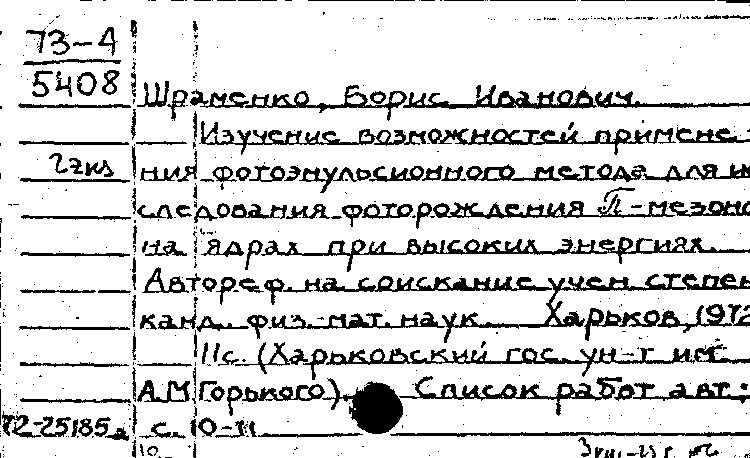 73-4
5408
Шраменко, Борис Иванович.
Изучение возможностей примене-
2 экз
ния фотоэмульсионного метода для ис
следования фоторождения П-мезоно
на ядрах при высоких энергиях.
Автореф. на соискание учен. степен
канд. физ.-мат. наук. Харьков, 1972
11с. (Харьковский гос. ун-т им.
А.М Горького). Список работ авт.:
72-25185а с. 10-11